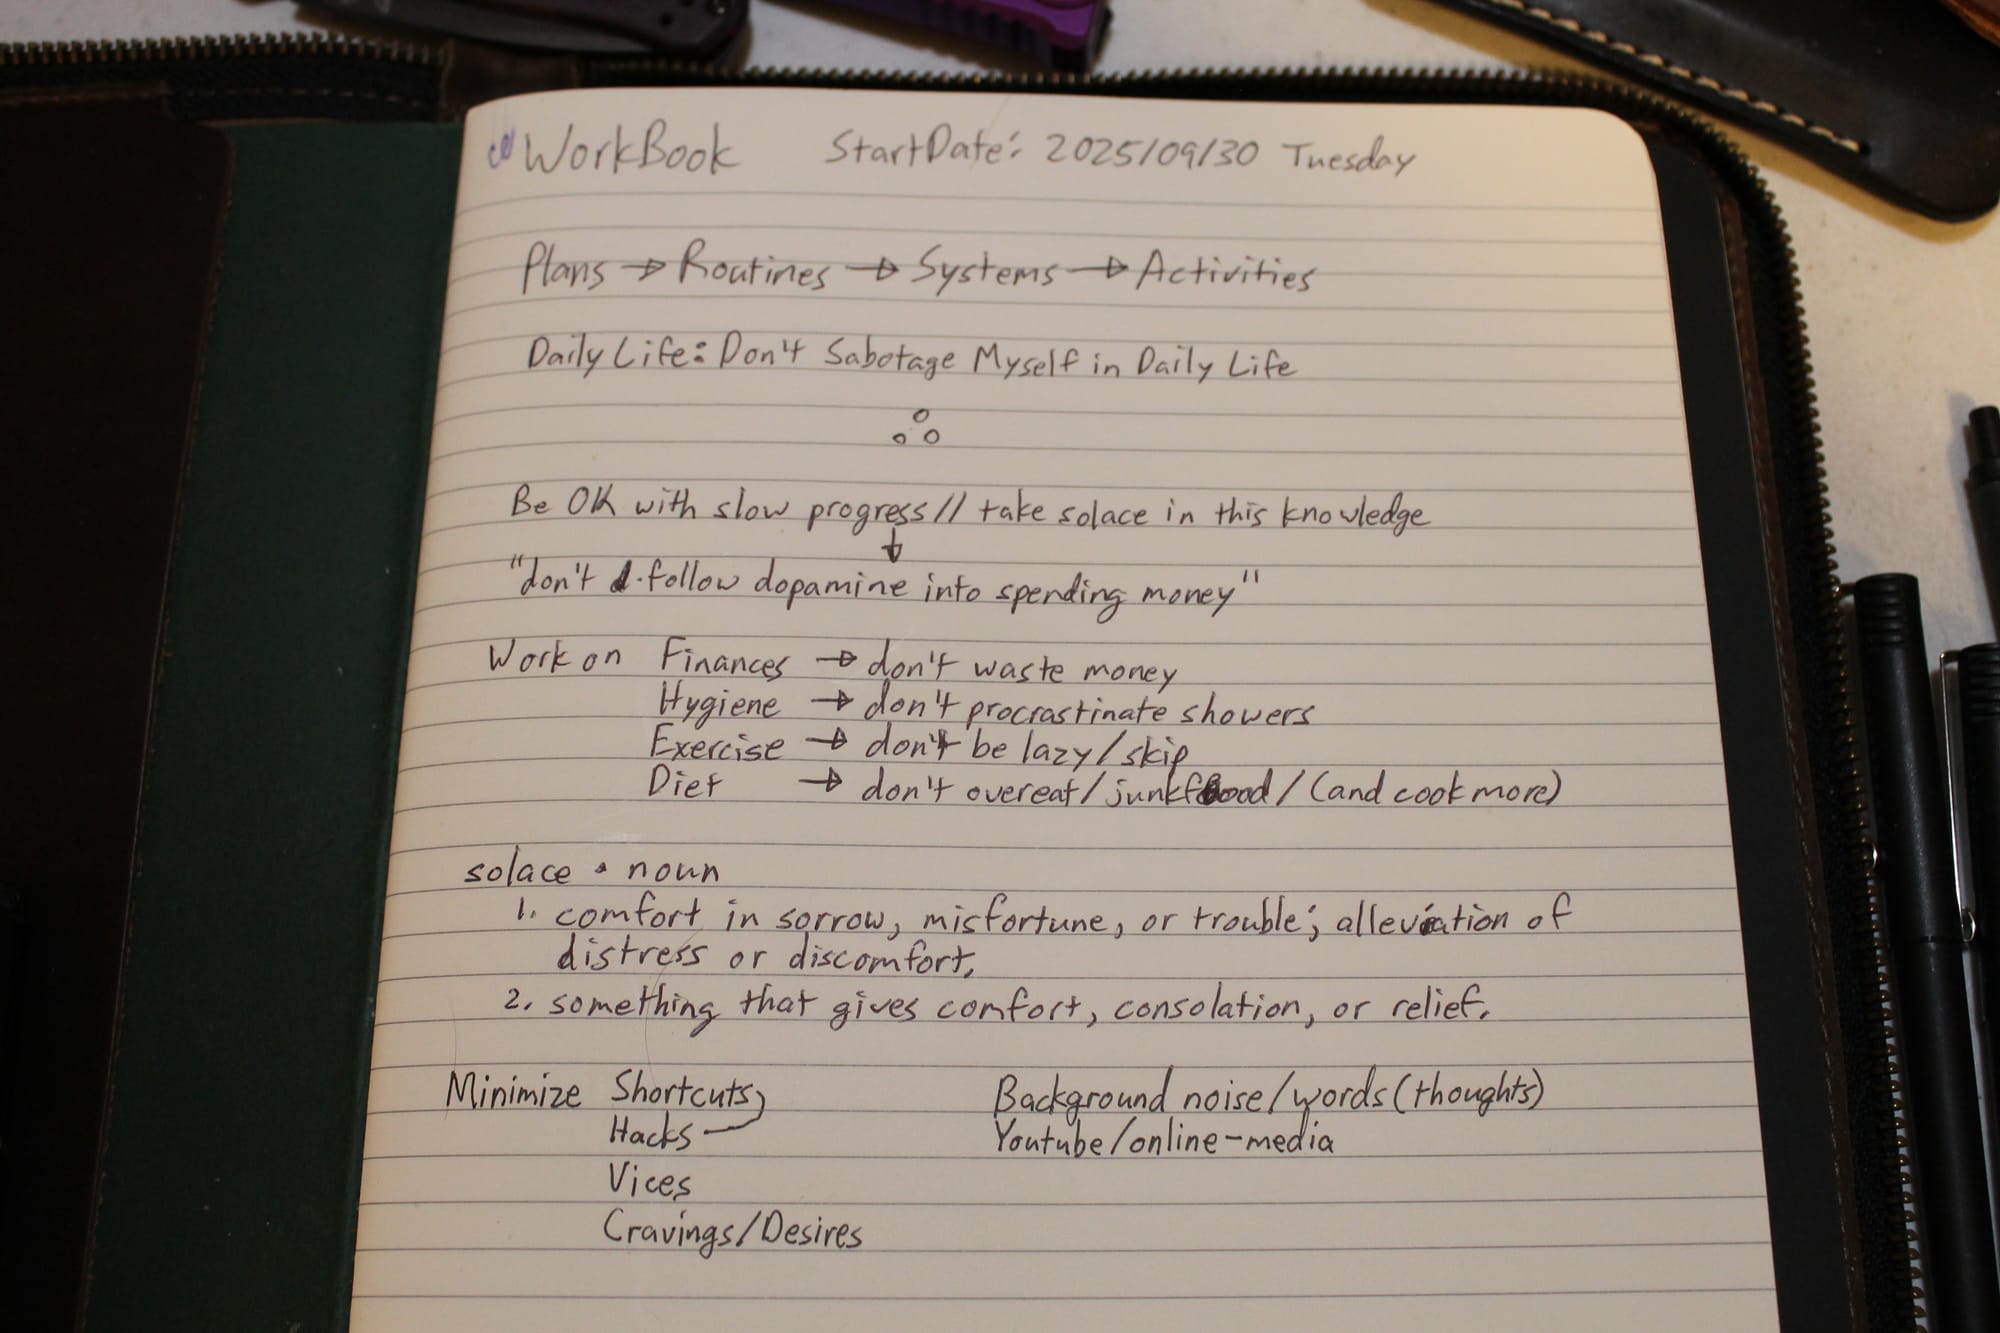 WorkBook StartDate: 2025/09/30 Tuesday
Plans → Routines → Systems → Activities
Daily Life: Don't Sabotage Myself in Daily Life
Be OK with slow progress // take solace in this knowledge
↓
"don't follow dopamine into spending money"
Work on Finances → don't waste money
Hygiene → don't procrastinate showers
Exercise → don't be lazy/skip
Diet → don't overeat/junkfood/(and cook more)
solace • noun
1. comfort in sorrow, misfortune, or trouble; alleviation of
distress or discomfort.
2. something that gives comfort, consolation, or relief.
Minimize Shortcuts Background noise/words(thoughts)
Hacks Youtube/online-media
Vices
Cravings/Desires